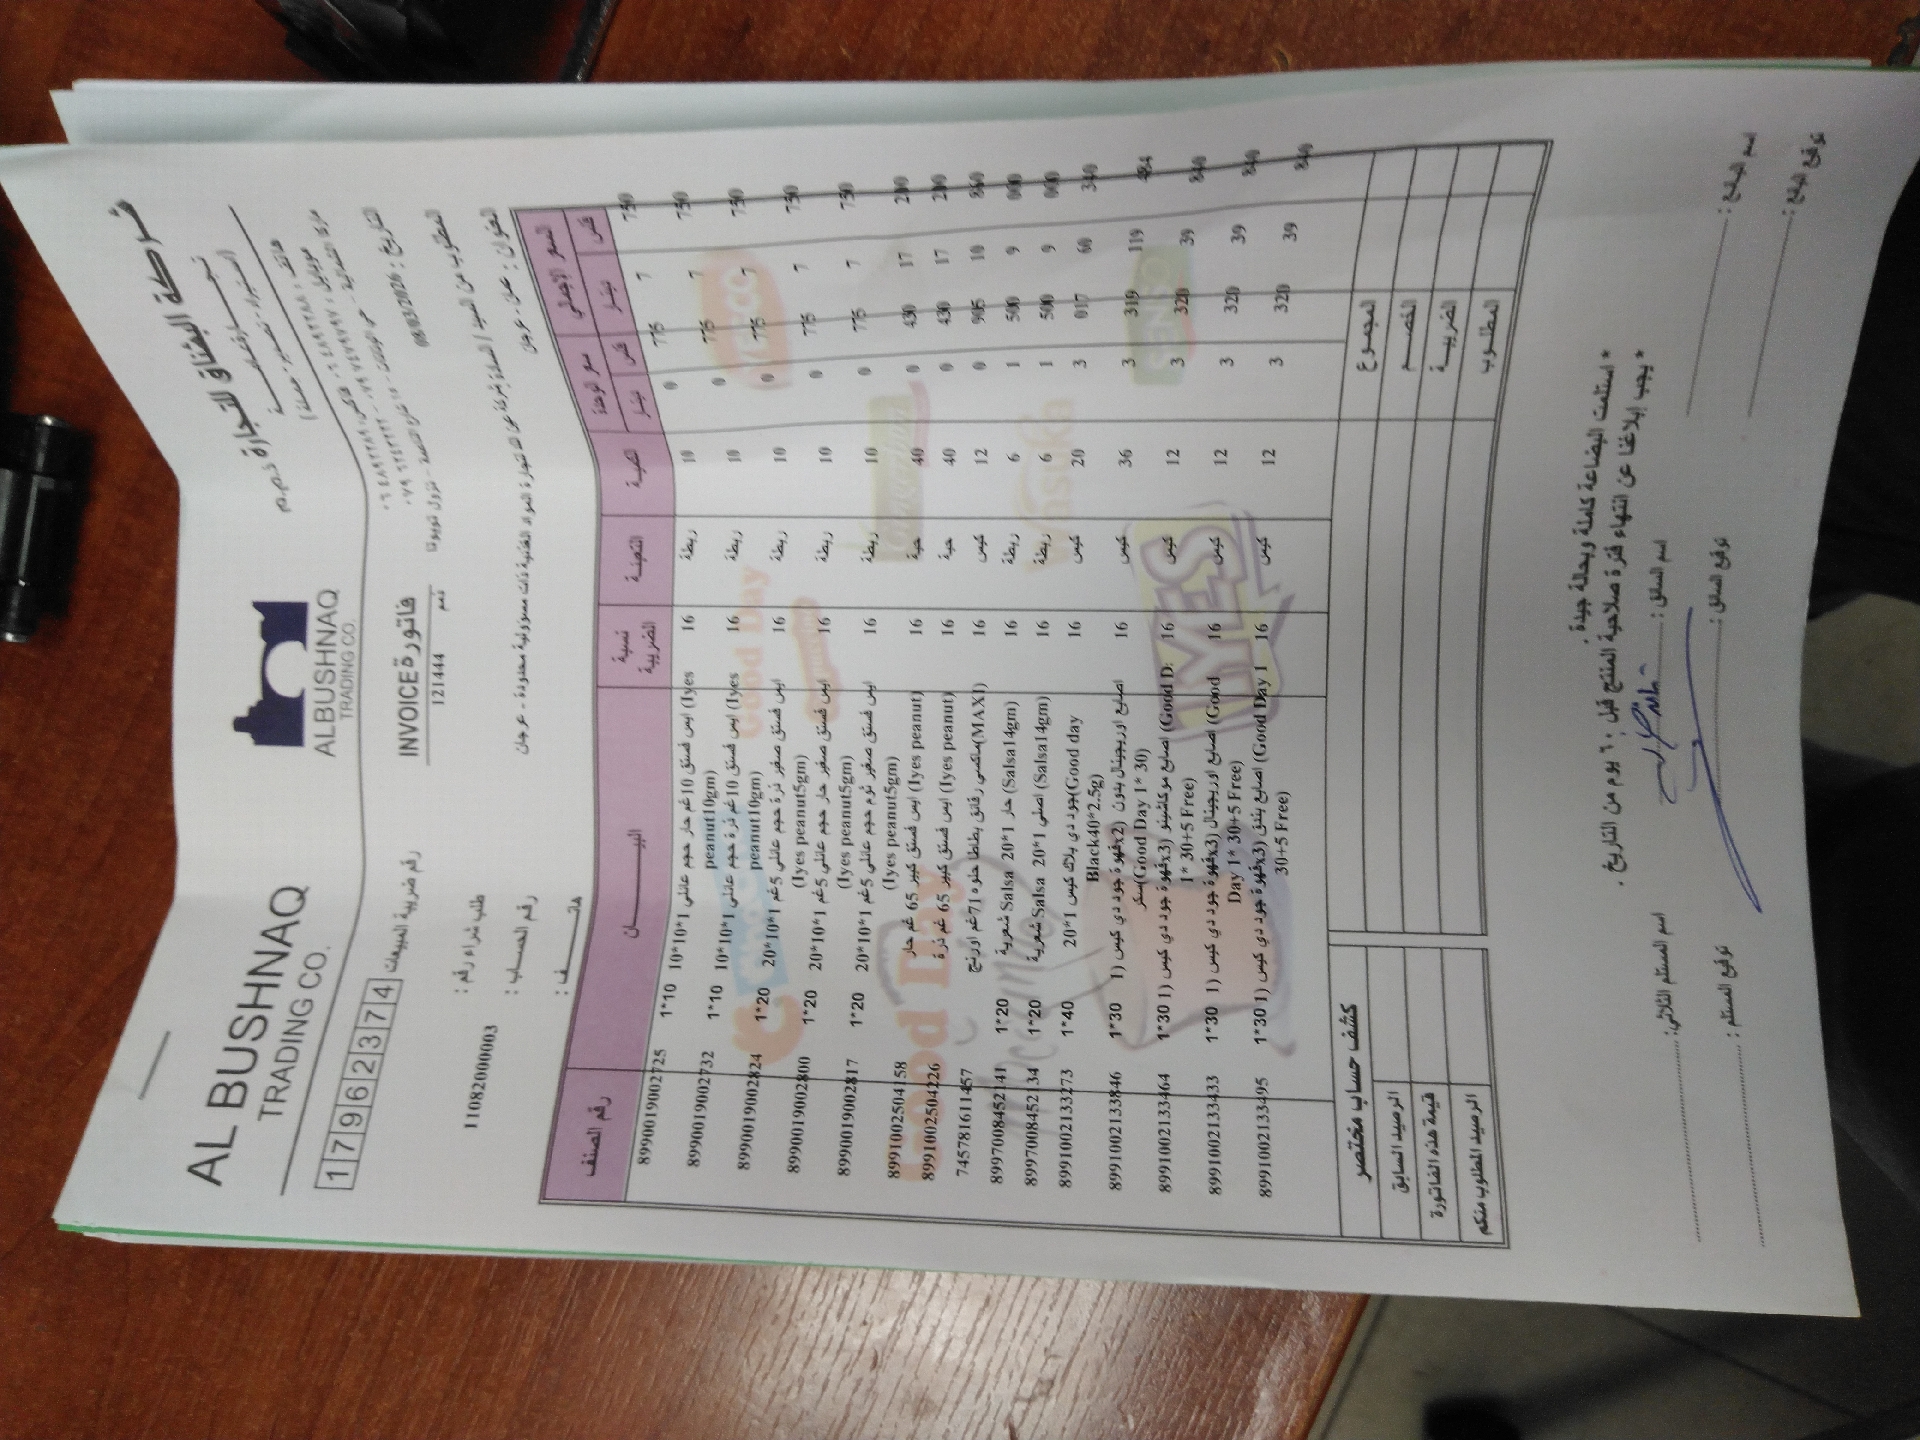 AL BUSHNAQ
TRADING CO.
ALBUSHNAQ
TRADING CO.
شركة البشناق للتجارة ذ.م.م
17962374
رقم ضريبة المبيعات
فاتورة INVOICE
121444
ذمم
التاريخ : 08/03/2026
طلب شراء رقم : 110820000003
رقم الحساب :
هاتف :
العنوان : عمان - عرجان
رقم الصنف البيان نسبة الضريبة التعبئة الكمية سعر الوحدة السعر الاجمالي
دينار فلس دينار فلس
8990019002725 1*10 ايس فستق 10غم حار حجم عائلي 1*10*10 (Iyes peanut10gm) 16 ربطة 10 0 775 7 750
8990019002732 1*10 ايس فستق 10غم ذرة حجم عائلي 1*10*10 (Iyes peanut10gm) 16 ربطة 10 0 775 7 750
8990019002824 1*20 ايس فستق صغير ذرة حجم عائلي 5غم 1*10*20 (Iyes peanut5gm) 16 ربطة 10 0 775 7 750
8990019002800 1*20 ايس فستق صغير حار حجم عائلي 5غم 1*10*20 (Iyes peanut5gm) 16 ربطة 10 0 775 7 750
8990019002817 1*20 ايس فستق صغير ثوم حجم عائلي 5غم 1*10*20 (Iyes peanut5gm) 16 ربطة 10 0 775 7 750
8991002504158 ايس فستق كبير 65 غم حار (Iyes peanut) 16 حبة 40 0 430 17 200
8991002504226 ايس فستق كبير 65 غم ذرة (Iyes peanut) 16 حبة 40 0 430 17 200
745781611457 ماكسي رقائق بطاطا حلوه 71غم اورنج (MAXI) 16 كيس 12 0 905 10 860
8997008452141 1*20 شعرية Salsa حار 1*20 (Salsa14gm) 16 ربطة 6 1 500 9 000
8997008452134 1*20 شعرية Salsa اصلي 1*20 (Salsa14gm) 16 ربطة 6 1 500 9 000
8991002133273 1*40 جود دي بلاك كيس 1*20 (Good day Black40*2.5g) 16 كيس 20 3 017 60 340
8991002133846 1*30 اصابع اوريجينال بدون (2x قهوة جود دي كيس (1 سكر (Good Day 1* 30) 16 كيس 36 3 319 119 484
8991002133464 1*30 اصابع موكاشينو (3x قهوة جود دي كيس (1 (Good D: 1* 30+5 Free) 16 كيس 12 3 320 39 840
8991002133433 1*30 اصابع اوريجينال (3x قهوة جود دي كيس (1 (Good Day 1* 30+5 Free) 16 كيس 12 3 320 39 840
8991002133495 1*30 اصابع بندق (3x قهوة جود دي كيس (1 (Good Day 1 30+5 Free) 16 كيس 12 3 320 39 840
كشف حساب مختصر
الرصيد السابق
قيمة هذه الفاتورة
الرصيد المطلوب منكم
المجموع
الخصم
الضريبة
المطلوب
* استلمت البضاعة كاملة وبحالة جيدة .
* يجب إبلاغنا عن انتهاء فترة صلاحية المنتج قبل ٦٠ يوم من التاريخ .
اسم المستلم الثلاثي:
اسم السائق :
اسم البائع :
توقيع المستلم :
توقيع السائق :
توقيع البائع :